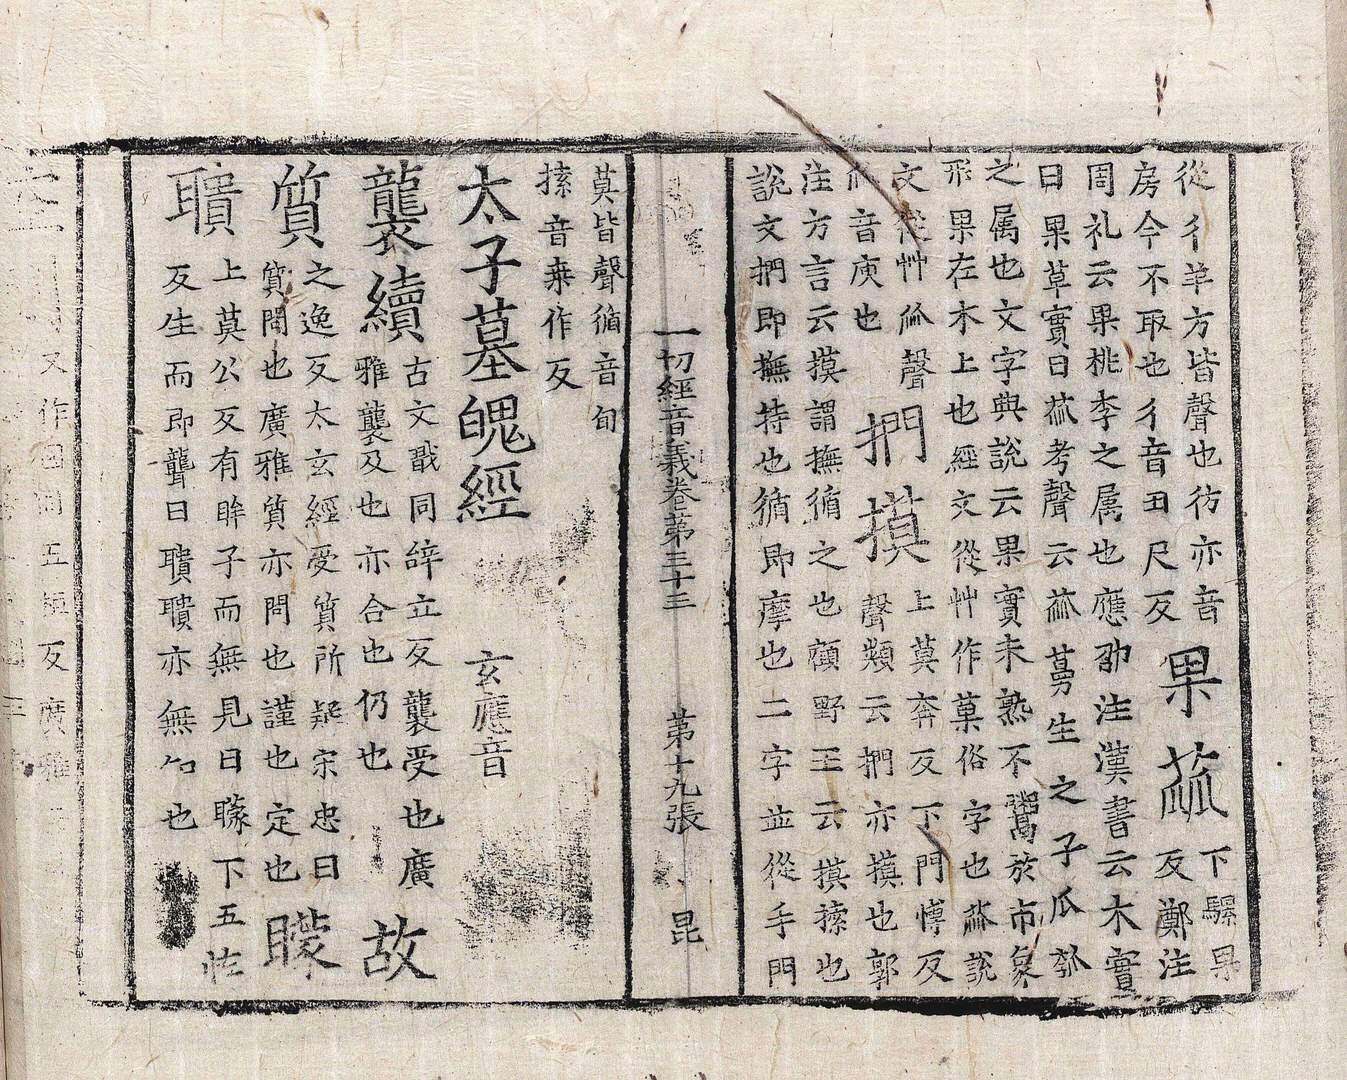 從彳羊方皆聲也彷亦音
房今不取也彳音丑尺反
果蓏
下騾果
反鄭注
周礼云果桃李之属也應劭注漢書云木實
曰果草實曰蓏考聲云蓏蔓生之子瓜瓠
之属也文字典說云果實未熟不鬻於市象
形果在木上也經文從艸作菓俗字也蓏說
文從艸㼌聲
㼌音庾也
捫摸
上莫奔反下門愽反
聲類云捫亦摸也郭
注方言云摸謂撫循之也顧野王云摸㨞也
說文捫即撫持也循即摩也二字並從手門
一切經音義卷第三十三 第十九張 昆
莫皆聲循音旬
㨞音桒作反
太子墓魄經 玄應音
襲續
古文戬同辝立反襲受也廣
雅襲及也亦合也仍也
故質
之逸反太玄經爰質所疑宋忠曰
質問也廣雅質亦問也謹也定也
矇聵
上莫公反有眸子而無見曰矇下五怪
反生而即聾曰聵聵亦無知也
又作 同五 反廣雅